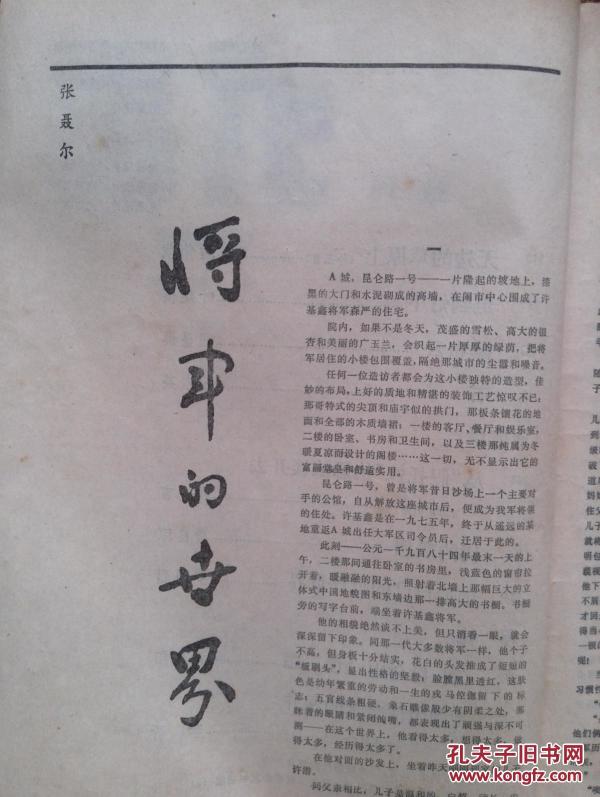 张聂尔
将军的世界
一
A城,昆仑路一号——一片隆起的坡地上,漆
黑的大门和水泥砌成的高墙,在闹市中心围成了许
基鑫将军森严的住宅。
院内,如果不是冬天,茂盛的雪松、高大的银
杏和美丽的广玉兰,会织起一片厚厚的绿荫,把将
军居住的小楼包围覆盖,隔绝那城市的尘嚣和噪音。
任何一位造访者都会为这小楼独特的造型,佳
妙的布局,上好的质地和精湛的装饰工艺惊叹不已;
那哥特式的尖顶和庙宇似的拱门,那板条镶花的地
面和全部的木质墙裙;一楼的客厅、餐厅和娱乐室,
二楼的卧室、书房和卫生间,以及三楼那纯属为冬
暖夏凉而设计的阁楼……这一切,无不显示出它的
富丽堂皇和舒适实用。
昆仑路一号,曾是将军昔日沙场上一个主要对
手的公馆,自从解放这座城市后,便成为我军将领
的住处。许基鑫是在一九七五年,终于从遥远的某
地重返A城出任大军区司令员后,迁居于此的。
此刻——公元一千九百八十四年最末一天的上
午,二楼那间通往卧室的书房里,浅蓝色的窗帘拉
开着,暖融融的阳光,照射着北墙上那幅巨大的立
体式中国地貌图和东墙边那一排高大的书橱。书橱
旁的写字台前,端坐着许基鑫将军。
他的相貌绝然谈不上美,但只消看一眼,就会
深深留下印象。同那一代大多数将军一样,他个子
不高,但身板十分结实,花白的头发推成了短短的
“板刷头”,显出性格的坚毅;脸膛黑里透红,这肤
色是幼年繁重的劳动和一生的戎马倥偬留下的标
志;五官线条粗硬,象石雕像般少有阴柔之处,那
眯着的眼睛和紧闭的嘴,都表现出了顽强与深不可
测——在这个世界上,他看得太多,想得太多,做
得太多,经历得太多了。
在他对面的沙发上,坐着昨天
许潜。
同父亲相比,儿子是
孔夫子旧书网